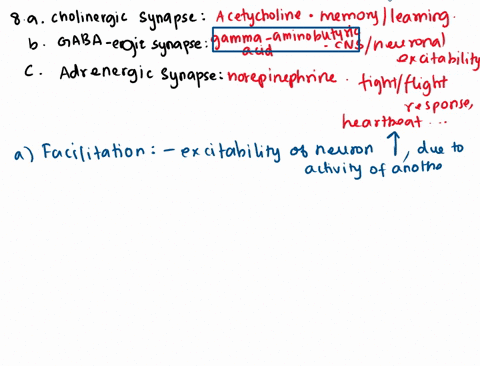 8.a. cholinergic synapse: Acetycholine • memory/learning.
b. GABA-ergic synapse: gamma-aminobutyric acid - CNS/neuronal excitability
C. Adrenergic synapse: norepinephrine • fight/flight
response,
heartbeat ...
a) Facilitation: - excitability of neuron ↑, due to
activity of anothe